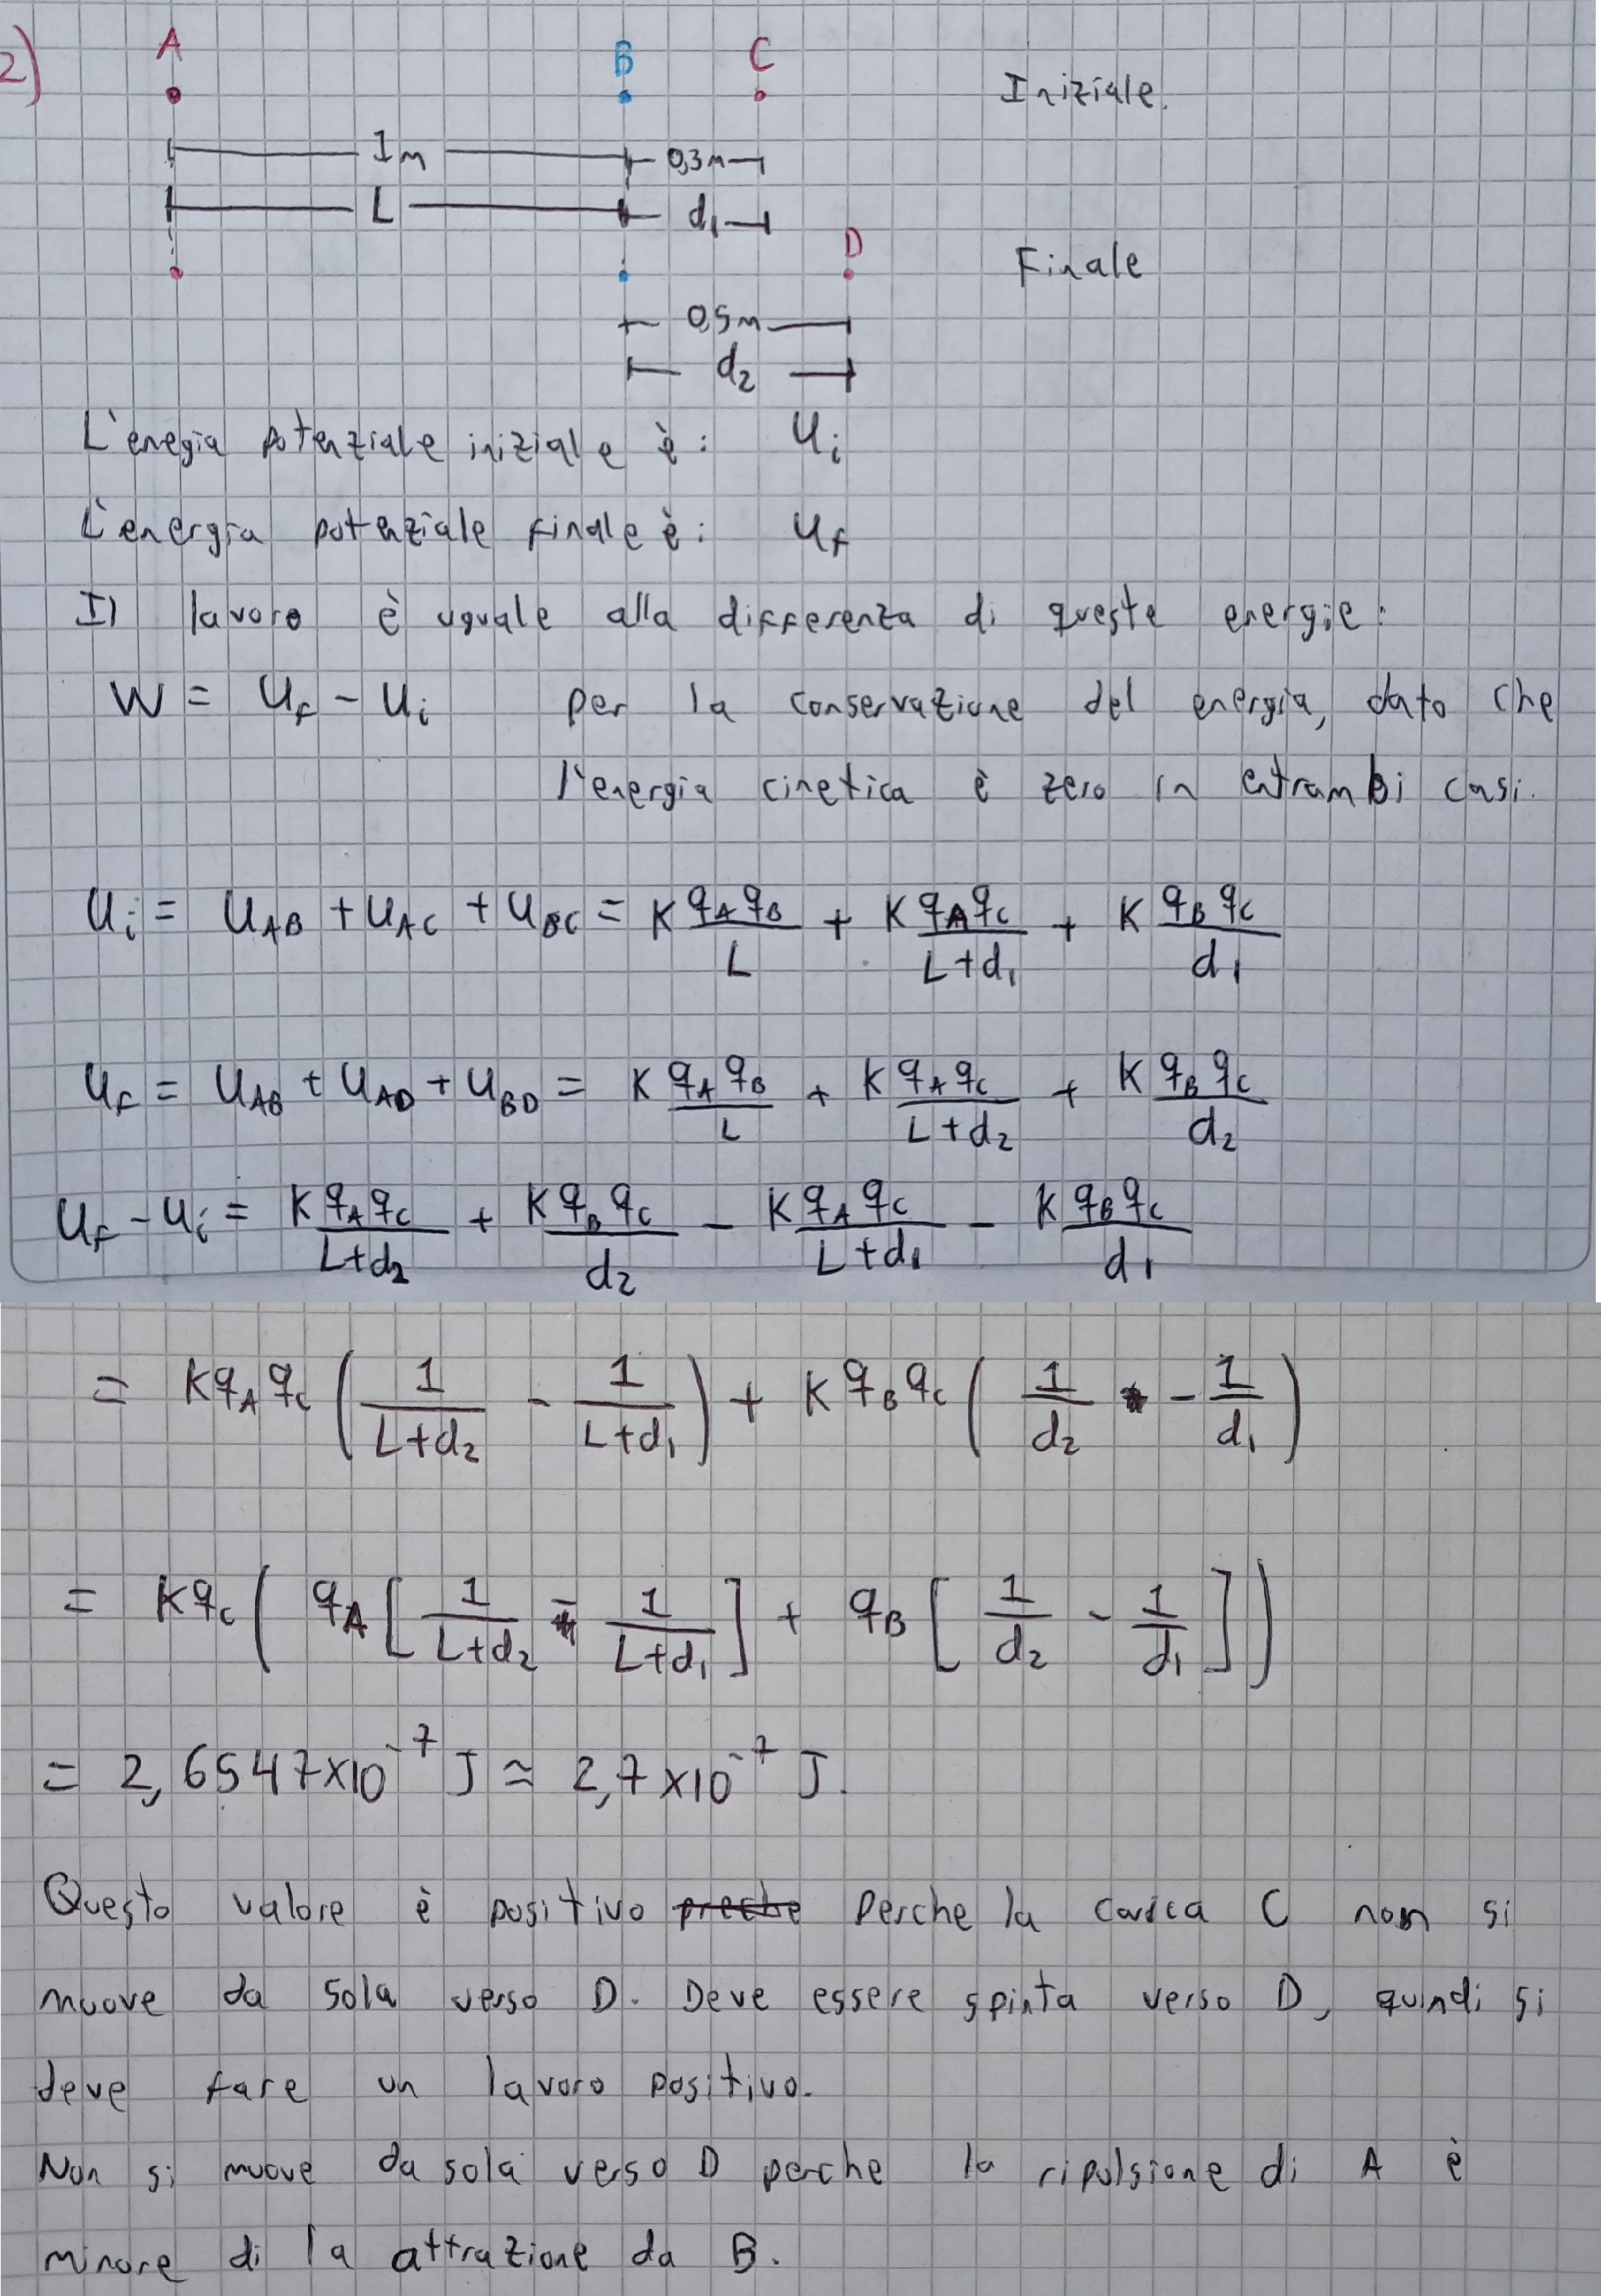 2)
A B C
Iniziale.
1m 0,3m
L d₁
D
Finale
0,5m
d₂
L'enegia potenziale iniziale è: Uᵢ
L'energia potenziale finale è: U_f
Il lavoro è uguale alla differenza di queste energie:
W = U_f - Uᵢ per la conservazione del energia, dato che
l'energia cinetica è zero in entrambi casi.
Uᵢ = U_AB + U_AC + U_BC = K q_A q_B / L + K q_A q_C / (L+d₁) + K q_B q_C / d₁
U_f = U_AB + U_AD + U_BD = K q_A q_B / L + K q_A q_C / (L+d₂) + K q_B q_C / d₂
U_f - Uᵢ = K q_A q_C / (L+d₂) + K q_B q_C / d₂ - K q_A q_C / (L+d₁) - K q_B q_C / d₁
= K q_A q_C ( 1/(L+d₂) - 1/(L+d₁) ) + K q_B q_C ( 1/d₂ - 1/d₁ )
= K q_C ( q_A [ 1/(L+d₂) - 1/(L+d₁) ] + q_B [ 1/d₂ - 1/d₁ ] )
= 2,6547×10⁻⁷ J ≈ 2,7×10⁻⁷ J.
Questo valore è positivo preche perche la carica C non si
muove da sola verso D. Deve essere spinta verso D, quindi si
deve fare un lavoro positivo.
Non si muove da sola verso D perche la ripulsione di A è
minore di la attrazione da B.